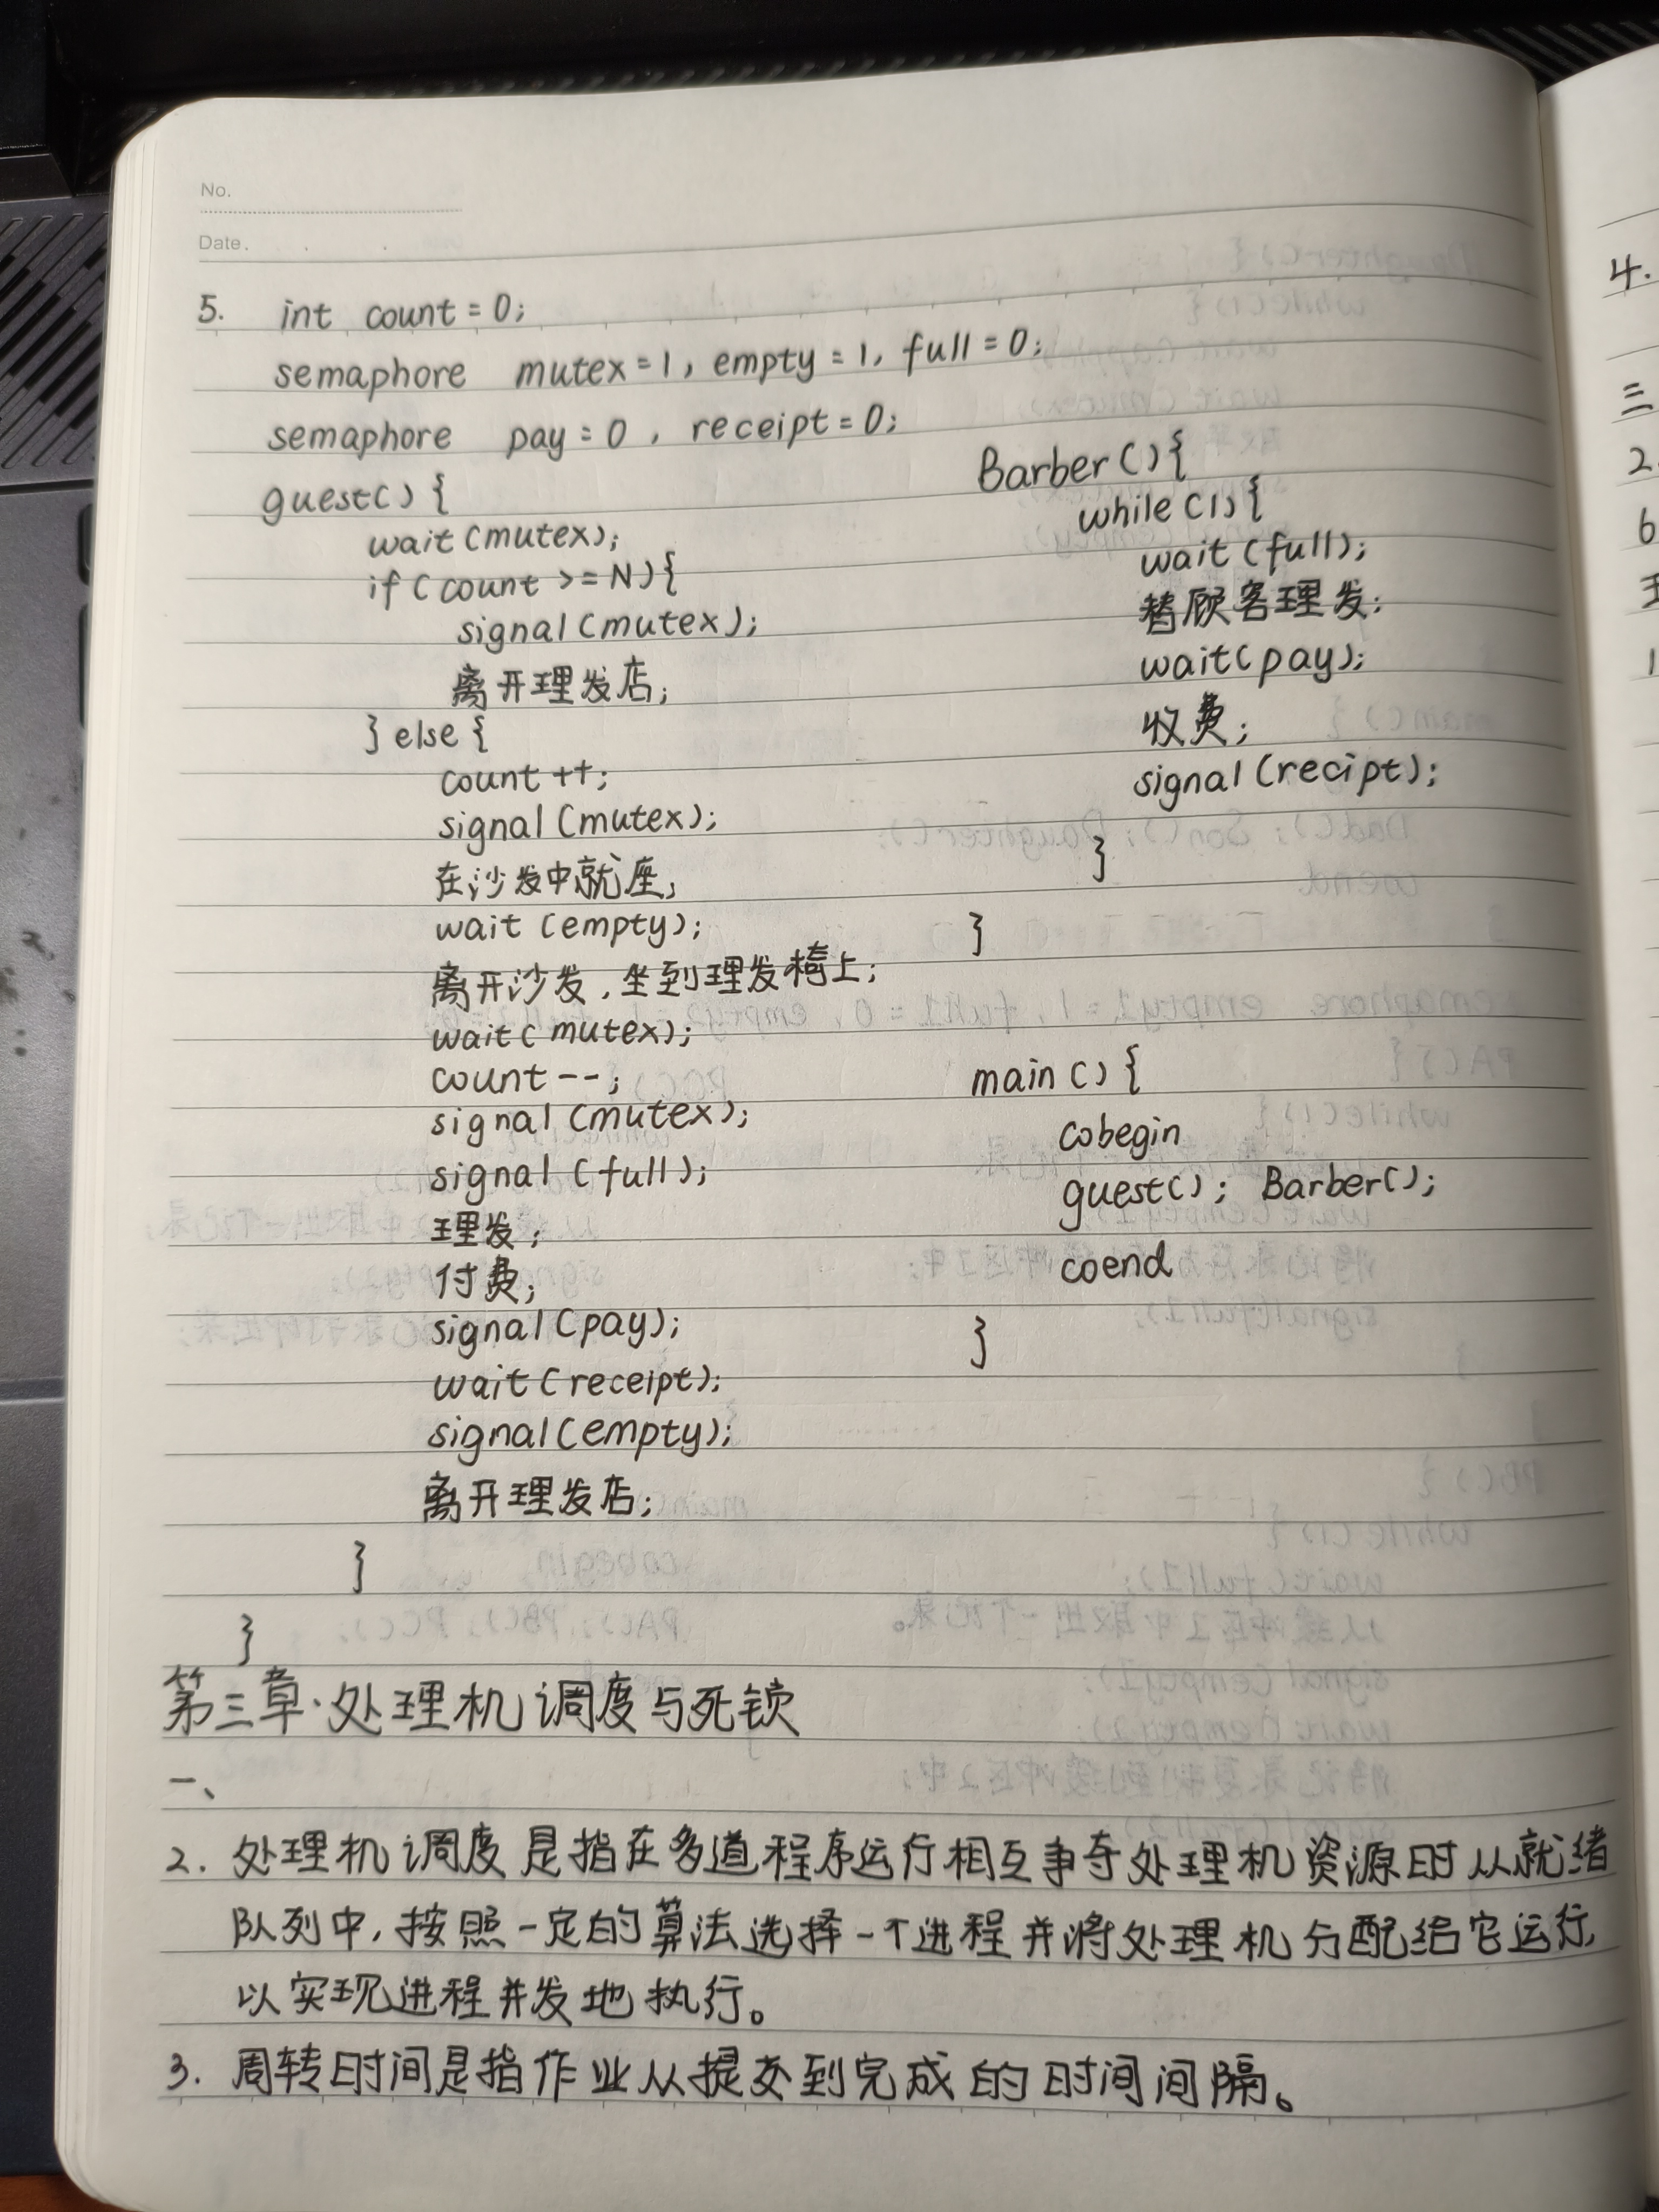 No.
Date.
5. int count = 0;
semaphore mutex = 1, empty = 1, full = 0;
semaphore pay = 0, receipt = 0;
guest() {
wait(mutex);
if (count >= N) {
signal(mutex);
离开理发店;
} else {
count ++;
signal(mutex);
在沙发中就座;
wait(empty);
离开沙发,坐到理发椅上;
wait(mutex);
count --;
signal(mutex);
signal(full);
理发;
付费;
signal(pay);
wait(receipt);
signal(empty);
离开理发店;
}
}
Barber() {
while(1) {
wait(full);
替顾客理发;
wait(pay);
收费;
signal(recipt);
}
}
main() {
cobegin
guest(); Barber();
coend
}
第三章·处理机调度与死锁
一、
2. 处理机调度是指在多道程序运行相互争夺处理机资源时从就绪
队列中,按照一定的算法选择一个进程并将处理机分配给它运行,
以实现进程并发地执行。
3. 周转时间是指作业从提交到完成的时间间隔。
4.
三
2.
6
1